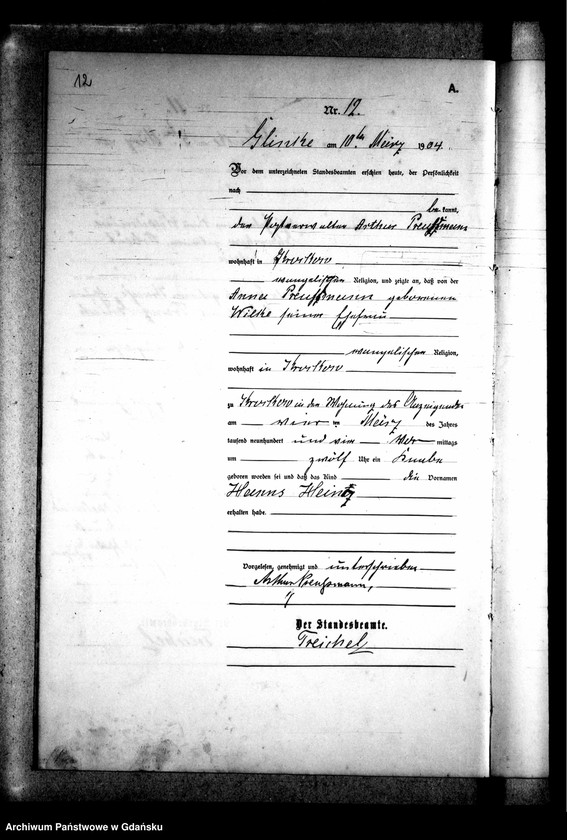 12
A.
Nr. 12.
Glinke am 10ten März 1904.
Vor dem unterzeichneten Standesbeamten erschien heute, der Persönlichkeit
nach
be kannt,
der Postverwalter Arthur Preußmann
wohnhaft in Krockow
evangelischer Religion, und zeigte an, daß von der
Anna Preußmann geborenen
Wilke seiner Ehefrau
evangelischer Religion,
wohnhaft in Krockow
zu Krockow in der Wohnung des Anzeigenden
am vier ten März des Jahres
tausend neunhundert und vier Vor mittags
um zwölf Uhr ein Knabe
geboren worden sei und daß das Kind die Vornamen
Hanns Heinz
erhalten habe.
Vorgelesen, genehmigt und unterschrieben
Arthur Preußmann,
Der Standesbeamte.
Treichel
Archiwum Państwowe w Gdańsku